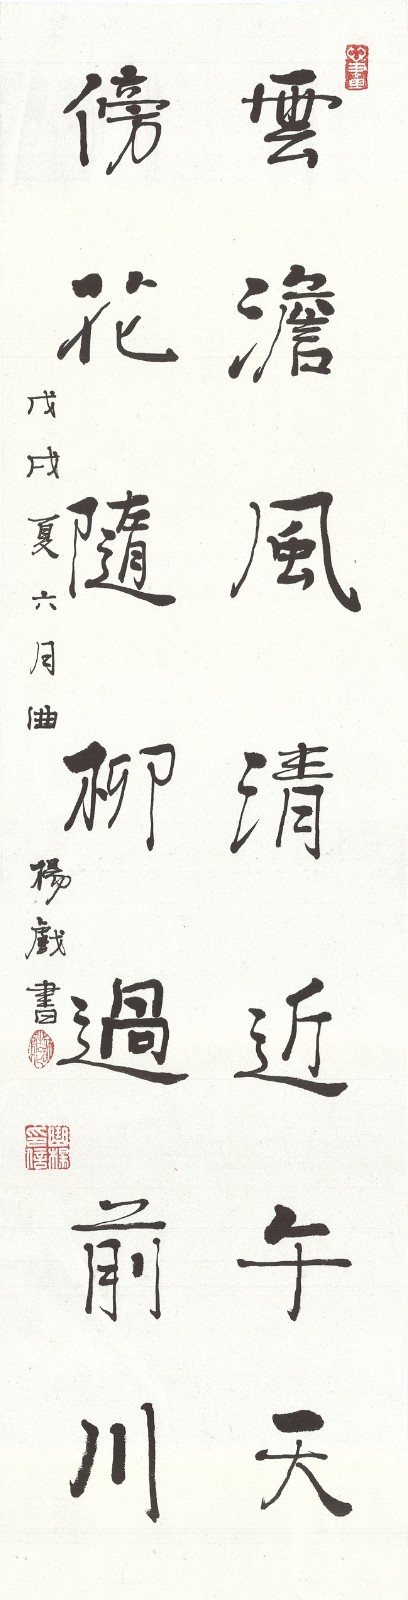 雲澹風清近午天
傍花隨柳過前川
戊戌夏六月曲
楊戲書